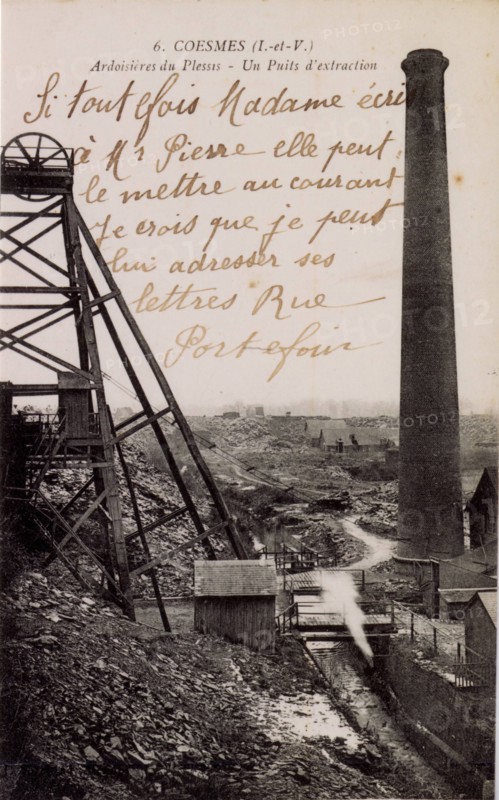 6. COESMES (I.-et-V.)
Ardoisières du Plessis - Un Puits d'extraction
Si toutefois Madame écrit
à Mr Pierre elle peut
le mettre au courant
Je crois que je peut
lui adresser ses
lettres Rue
Portefoin
PHOTO12
PHOTO12
PHOTO12
PHOTO12
PHOTO12
PHOTO12